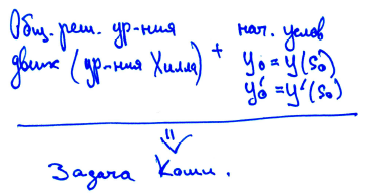 Общ. реш. ур-ния
движ (ур-ния Хилла) +
нач. услов
y₀ = y(s₀)
y₀' = y'(s₀)
Задача Коши.